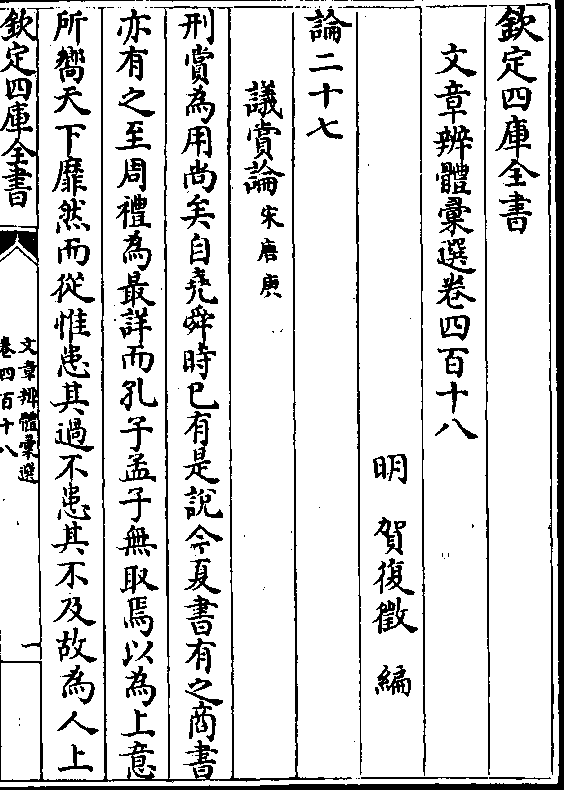 欽定四庫全書
文章辨體彙選卷四百十八
明 賀復徵 編
論二十七
議賞論 宋唐庚
刑賞為用尚矣自堯舜時已有是說今夏書有之商書
亦有之至周禮為最詳而孔子孟子無取焉以為上意
所嚮天下靡然而從惟患其過不患其不及故為人上
欽定四庫全書
文章辨體彙選
卷四百十八
一